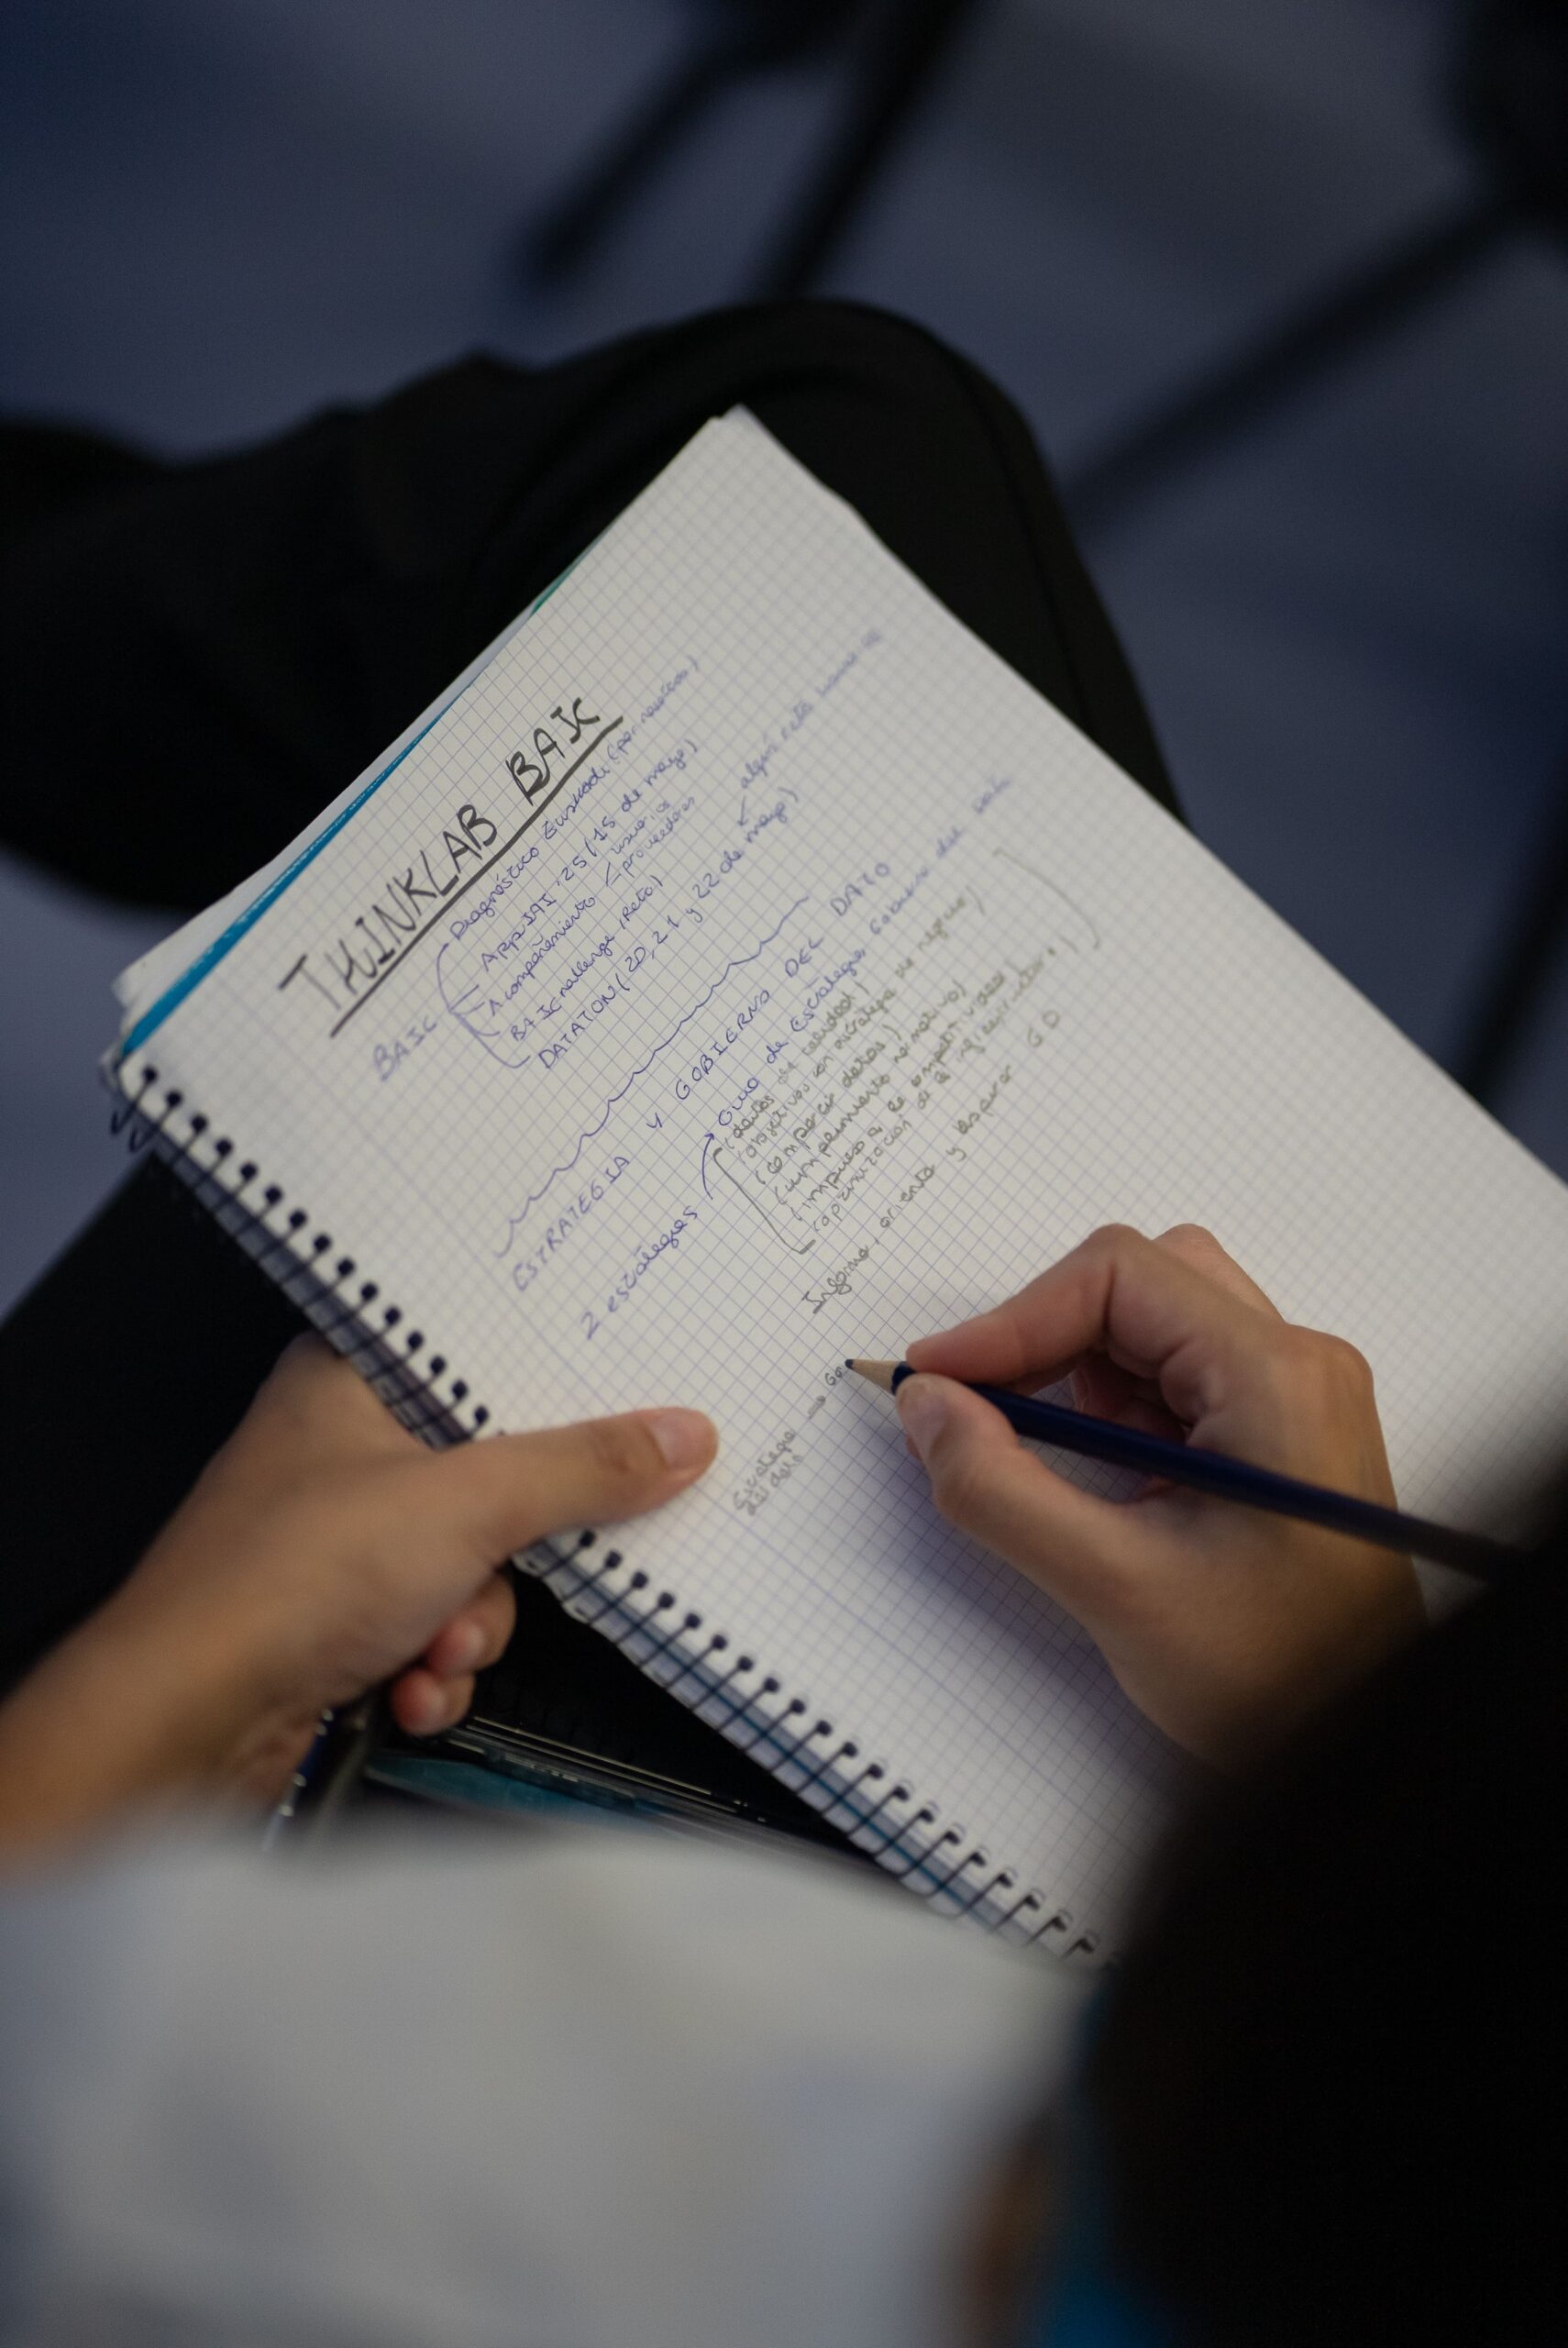 THINKLAB BAIC
BAIC
Diagnóstico Euskadi (por nosotros)
AppIAI '25 (15 de mayo)
Acompañamiento
usuarios
proveedores
BAIC challenge (Reto)
DATATON (20, 21 y 22 de mayo) ← algún reto
ESTRATEGIA Y GOBIERNO DEL DATO
2 estrategias → Guía de Estrategia Gobierno del
(datos de calidad)
(objetivos con estrategia de negocio)
(compartir datos)
(cumplimiento normativo)
(impulso a la competitividad
(optimización de la infraestructura)
Informa, orienta y GD
Estrategia → Go
del dato